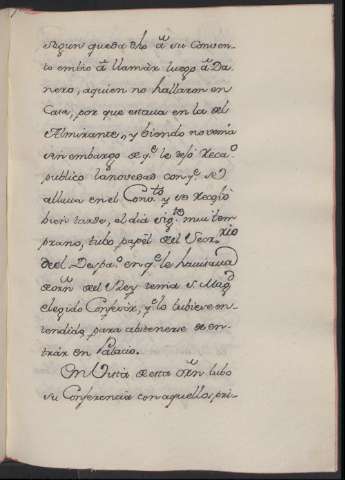 segun queda dho â su Conven-
to embio â llamár luego â Da-
nero, aquien no hallaron en
Casa, por que estava en la del
Almirante, y biendo no venia
sin embargo de q.e le dejó Reca.o
publico la novedad con q.e se
allava en el Con.to y se Recogió
bien tarde, el dia sig.te mui tem-
prano, tubo papél del Secr.rio
del Despa.o en q.e le havisava
de orñ del Rey tenia S. Mag.d
elegido Confesór, y q.e lo tubiese en-
tendido, para abstenerse de en-
trár en Palacio.
En Vista de esta orñ tubo
su Conferencia con aquellos, pri-